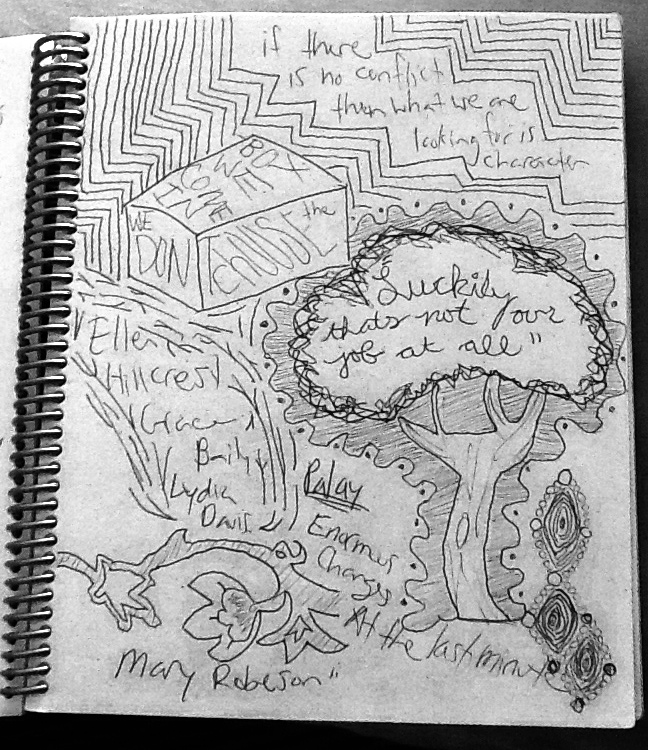 if there
is no conflict
then what we are
looking for is
character
WE
DON
CHOOSE the
BOX
WE'S
COME
IN
"Luckily
thats not our
job at all"
Ellen
Hillcrest
Grace
Baily
Lydia
Davis
Palay
Enormus
Changes
At the last minute
Mary Robeson"